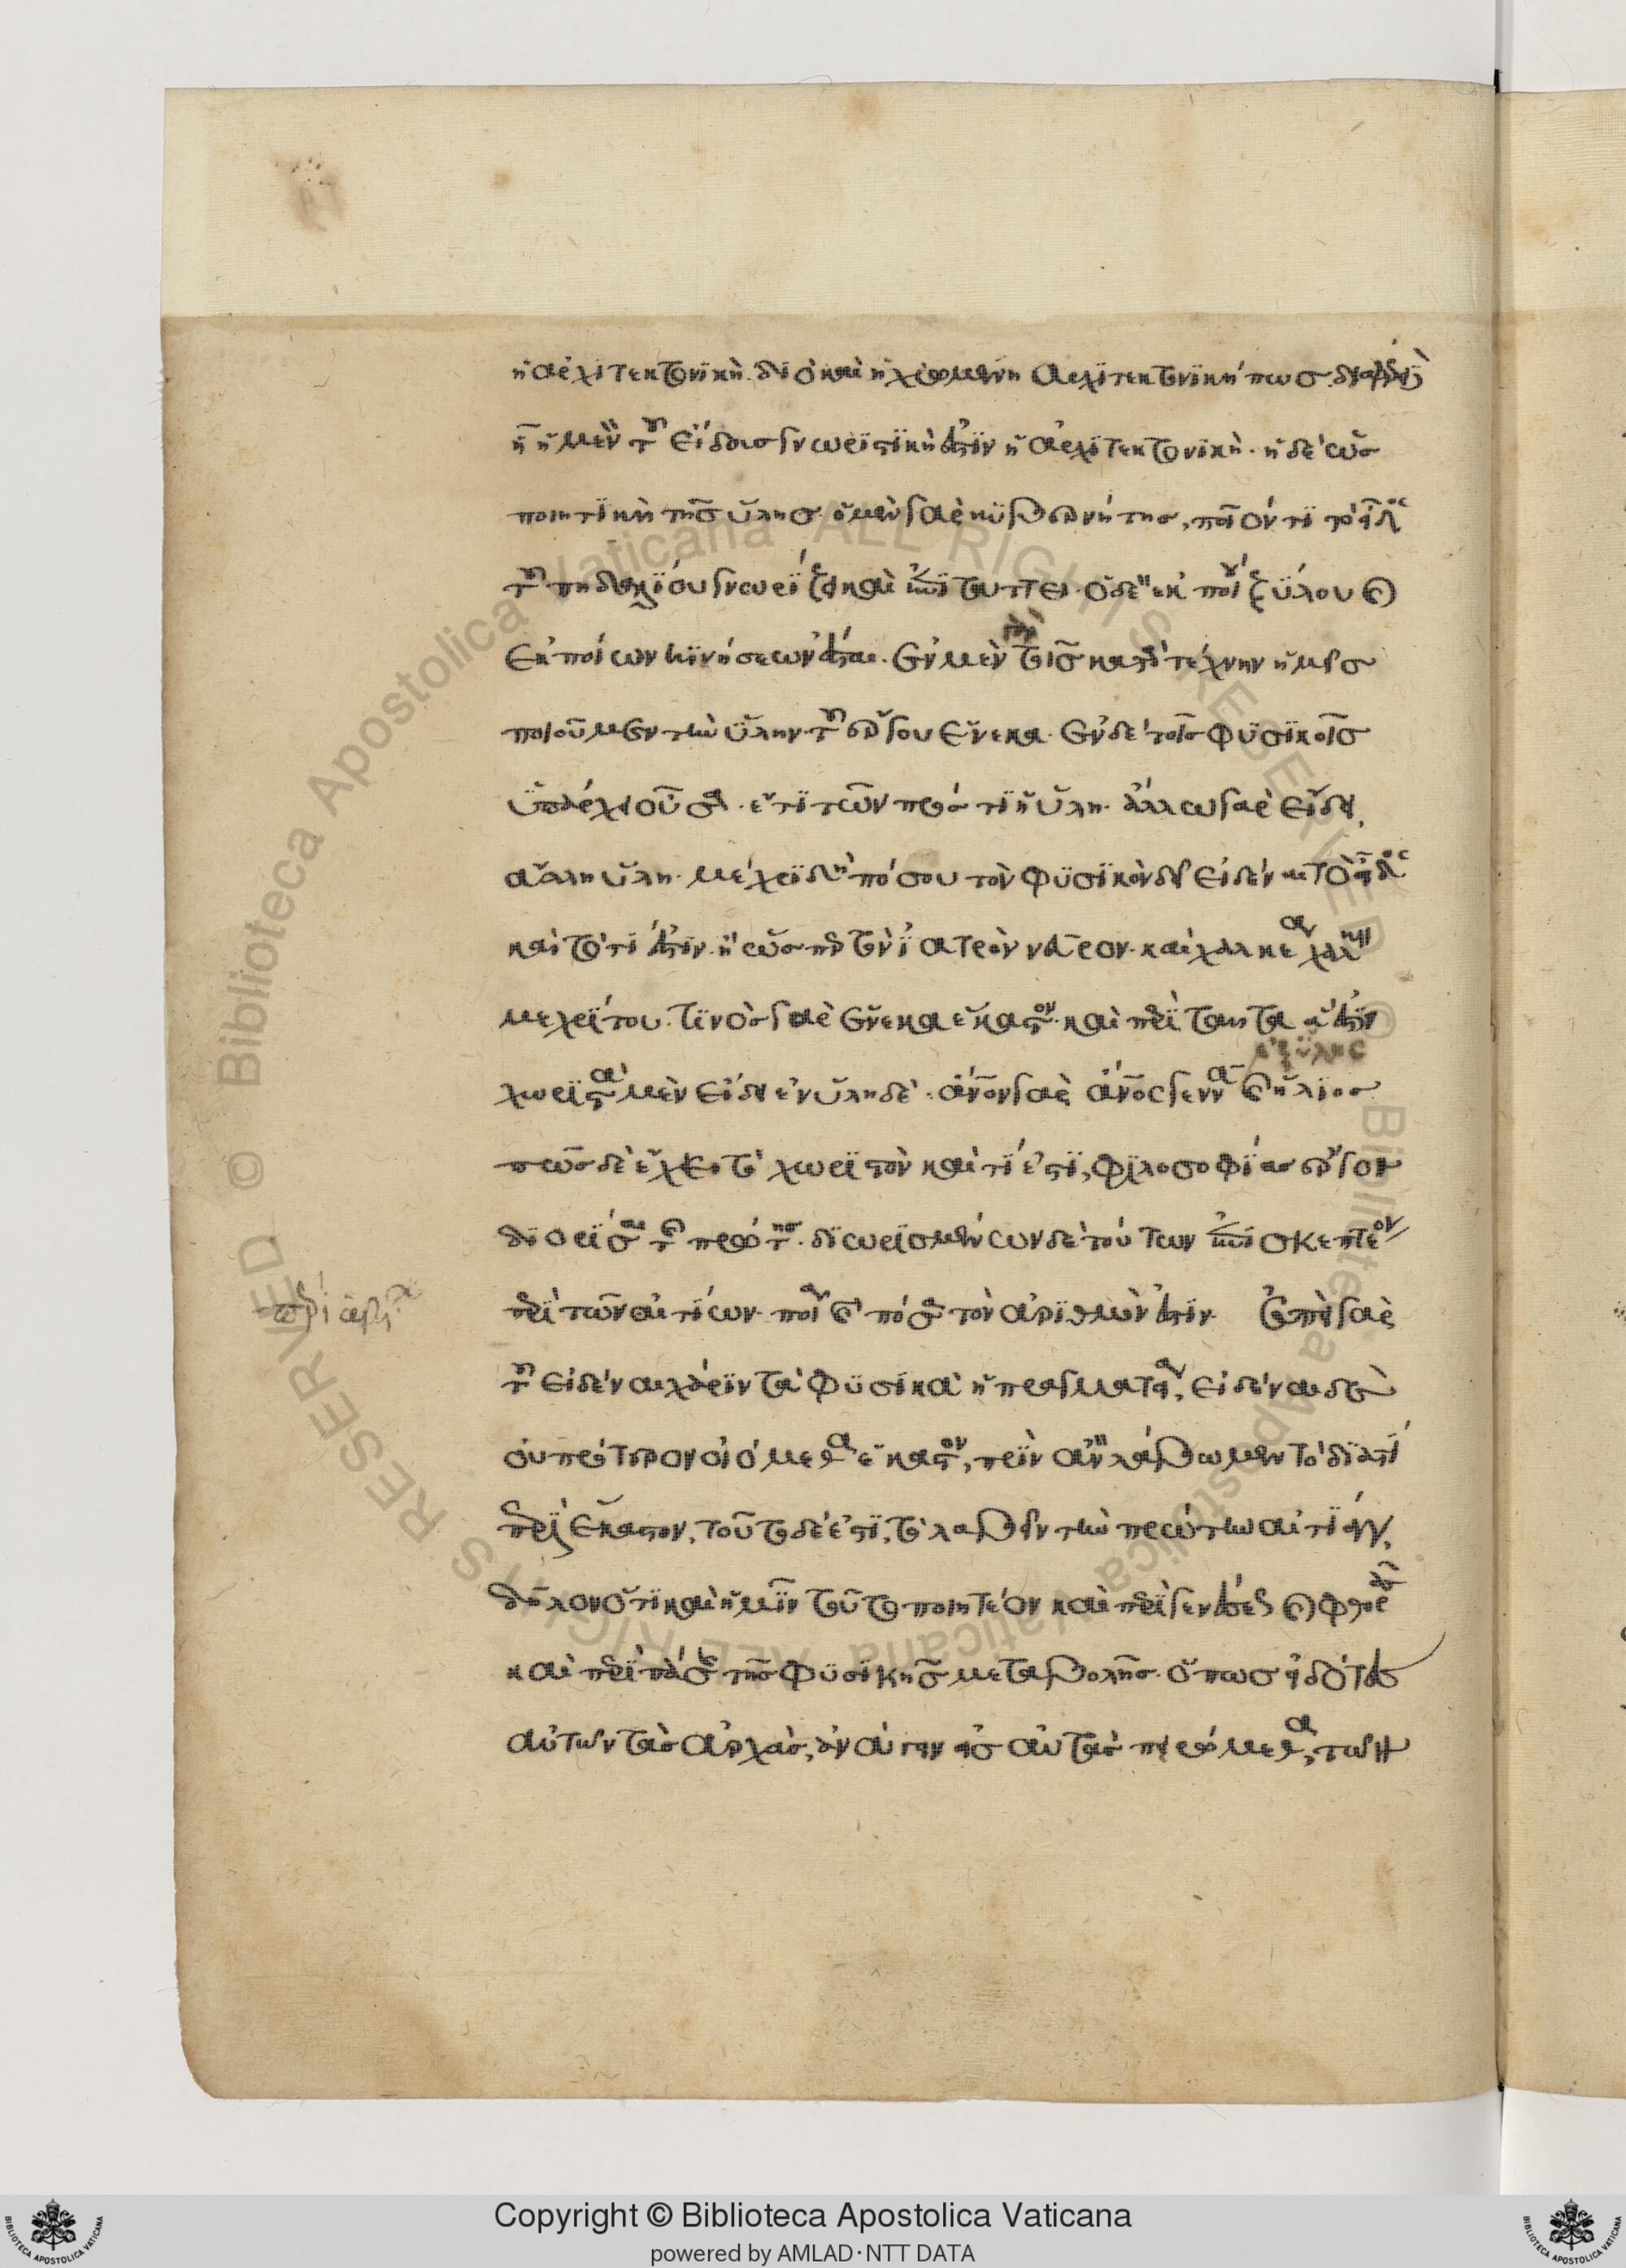 ἡ ἀρχιτεκτονική. διὸ καὶ ἡ χρωμένη ἀρχιτεκτονική πως. διαφέρει δὲ
ᾗ ἡ μὲν τοῦ εἴδους γνωριστική ἐστιν ἡ ἀρχιτεκτονική. ἡ δὲ ὡς
ποιητικὴ τῆς ὕλης. ὁ μὲν γὰρ κυβερνήτης, ποῖόν τι τὸ εἶδος
τοῦ πηδαλίου γνωρίζει καὶ ἐπιτάττει. ὁ δὲ ἐκ ποίου ξύλου καὶ
ἐκ ποίων κινήσεων ἔσται. ἐν μὲν τοῖς κατὰ τέχνην ἡμεῖς
ποιοῦμεν τὴν ὕλην τοῦ ἔργου ἕνεκα. ἐν δὲ τοῖς φυσικοῖς
ὑπάρχει οὖσα. ἔτι τῶν πρός τι ἡ ὕλη. ἄλλω γὰρ εἴδει,
ἄλλη ὕλη. μέχρι δὴ πόσου τὸν φυσικὸν δεῖ εἰδέναι τὸ εἶδος
καὶ τὸ τί ἐστιν. ἢ ὥσπερ τὸν ἰατρὸν νεῦρον. καὶ χαλκέα χαλκὸν
μέχρι του. τινὸς γὰρ ἕνεκα ἕκαστον. καὶ περὶ ταῦτα ἅ ἐστιν
χωριστὰ μὲν εἴδει ἐν ὕλη δέ. ἄνον γὰρ ἄνος γεννᾶ καὶ ἥλιος
πῶς δὲ ἔχει τὸ χωριστὸν καὶ τί ἐστι, φιλοσοφίας ἔργον
διορίσαι τῆς πρώτης. διωρισμένων δὲ τούτων ἐπισκεπτέον
περὶ τῶν αἰτίων. ποῖα καὶ πόσα τὸν ἀριθμόν ἐστιν. ἐπεὶ γὰρ
τοῦ εἰδέναι χάριν τὰ φυσικὰ ἡ πραγματεία, εἰδέναι δὲ
οὐ πρότερον οἰόμεθα ἕκαστον, πρὶν ἂν λάβωμεν τὸ διατί
περὶ ἕκαστον, τοῦτο δέ ἐστι, τὸ λαβεῖν τὴν πρώτην αἰτίαν,
δῆλον ὅτι καὶ ἡμῖν τοῦτο ποιητέον καὶ περὶ γενέσεως καὶ φθορᾶς
καὶ περὶ πάσης τῆς φυσικῆς μεταβολῆς. ὅπως εἰδότες
αὐτῶν τὰς ἀρχὰς, ἀνάγειν εἰς αὐτὰς πειρώμεθα, τῶν